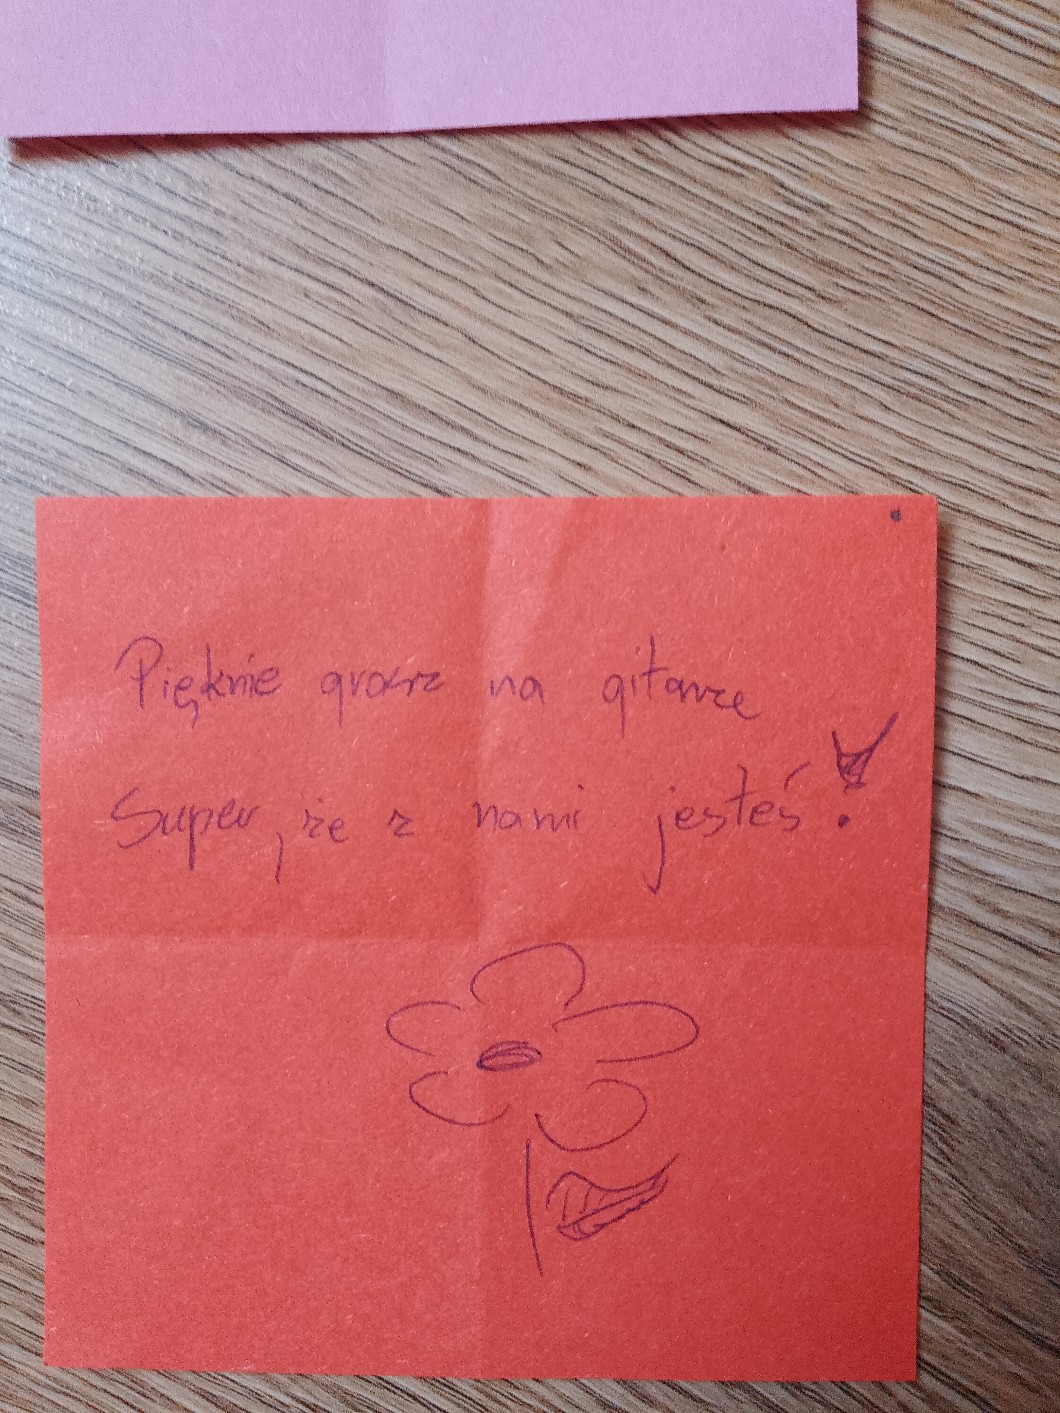 Pięknie grasz na gitarze
Super, że z nami jesteś!